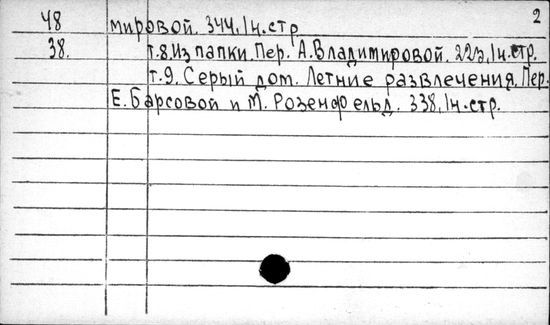 2
48 мировой. 344,1н.стр
38. т.8.Из папки. Пер. А.Владимировой. 223,1н.стр.
т.9. Серый дом. Летние развлечения. Пер.
Е.Барсовой и М. Розенфельд. 338,1н.стр.